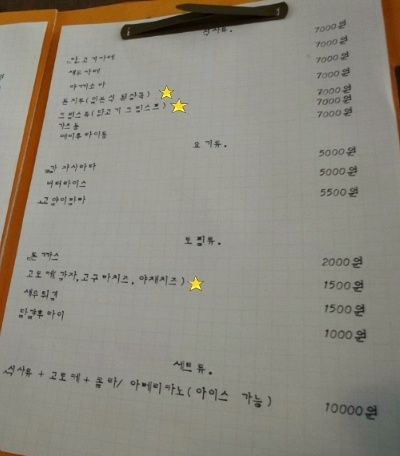 식사류. 7000원
닭고기카레 7000원
새우카레 7000원
야끼소바 7000원
돈지루(일본식 된장국) 7000원
크림스튜(닭고기 크림스프) 7000원
가츠동 7000원
에비후라이동
요기류.
5000원
버터라이스 5000원
고양이맘마 5500원
토핑류.
돈까스 2000원
고로케(감자,고구마치즈, 야채치즈) 1500원
새우튀김 1500원
달걀후라이 1000원
세트류.
식사류 + 고로케 + 콜라/ 아메리카노(아이스 가능) 10000원